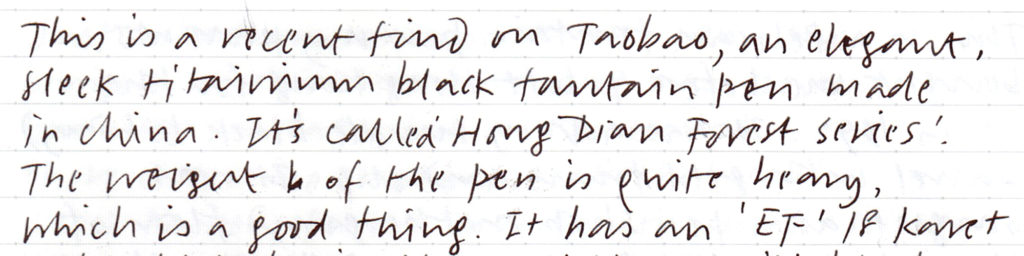 This is a recent find on Taobao, an elegant,
sleek titainium black fantain pen made
in china. It's called 'Hong Dian Forest series'.
The weigut of the pen is quite heavy,
which is a good thing. It has an 'EF' 18 karet